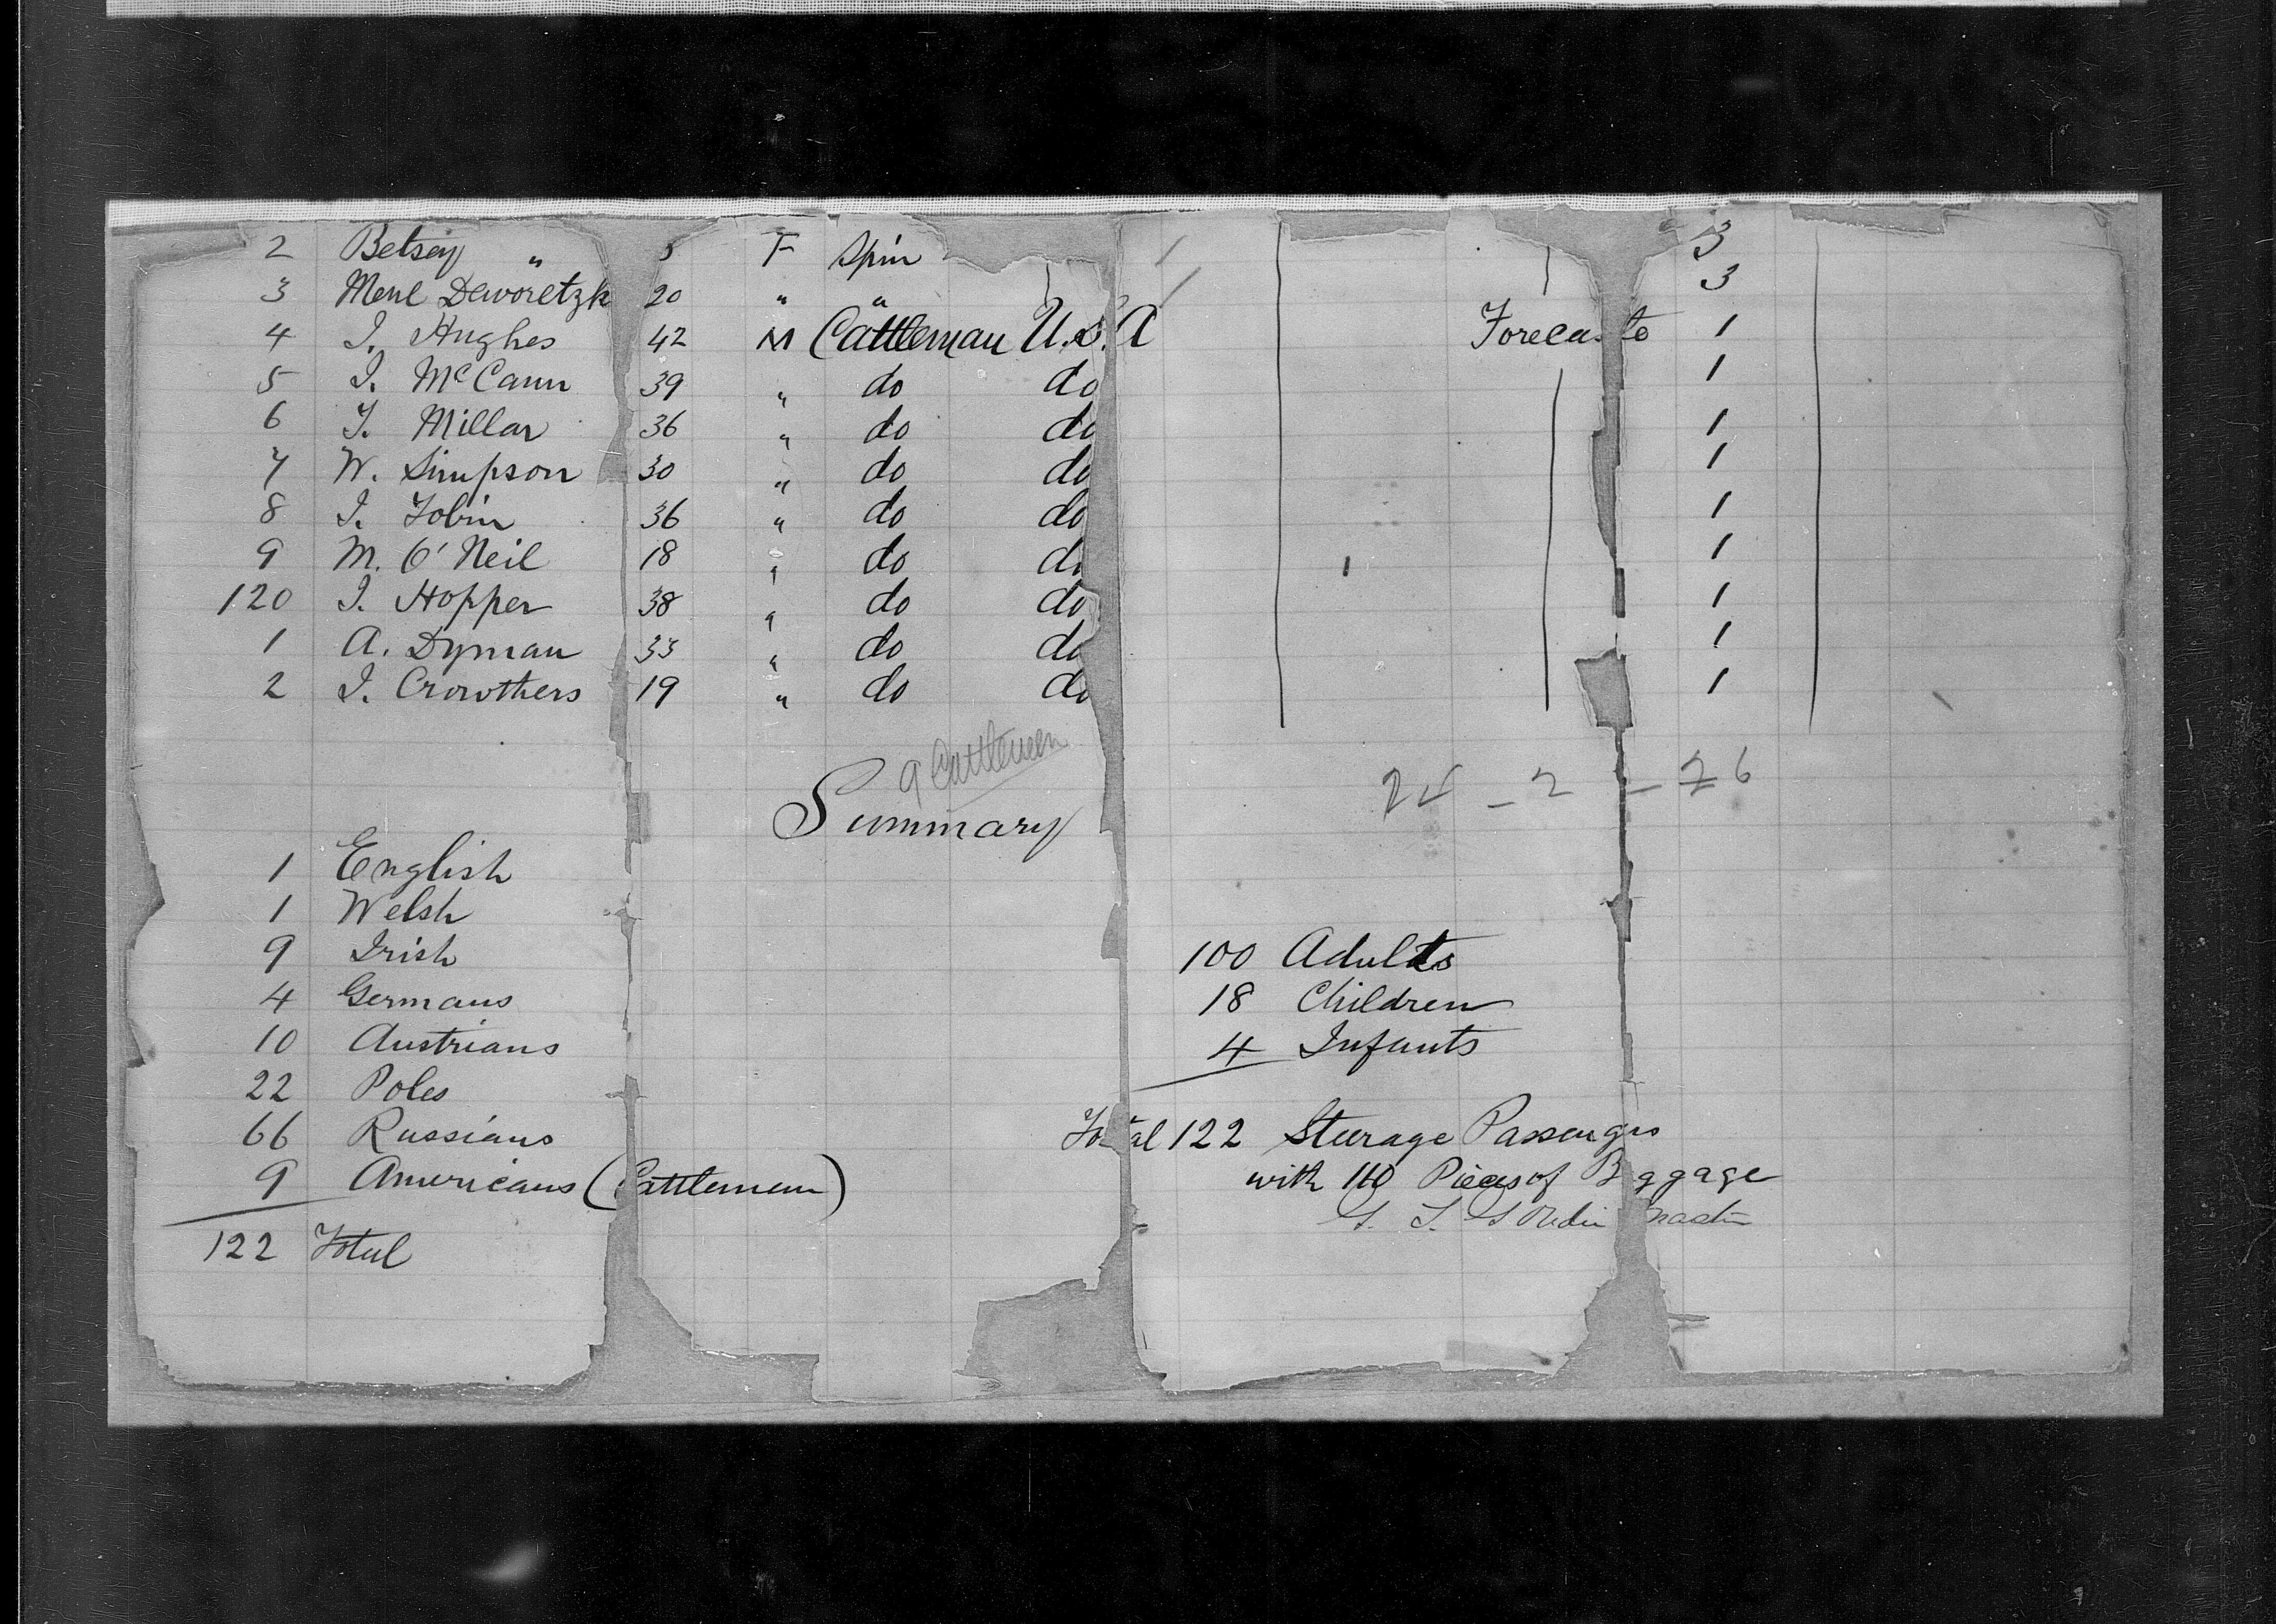 2 Betsey " F Spin 3
3 Mene Deworetzk 20 " " 3
4 J. Hughes 42 M Cattleman U.S.A 1
5 J. McCann 39 " do do 1
6 T. Millar 36 " do do 1
7 W. Simpson 30 " do do 1
8 J. Tobin 36 " do do 1
9 M. O'Neil 18 " do do 1
120 J. Hopper 38 " do do 1
1 A. Dyman 33 " do do 1
2 J. Crowthers 19 " do do 1
9 Cattlemen
Summary
1 English
1 Welsh
9 Irish
4 Germans
10 Austrians
22 Poles
66 Russians
9 Americans (Cattlemen)
122 Total
100 Adults
18 Children
4 Infants
Total 122 Steerage Passengers
with 110 Pieces of Baggage